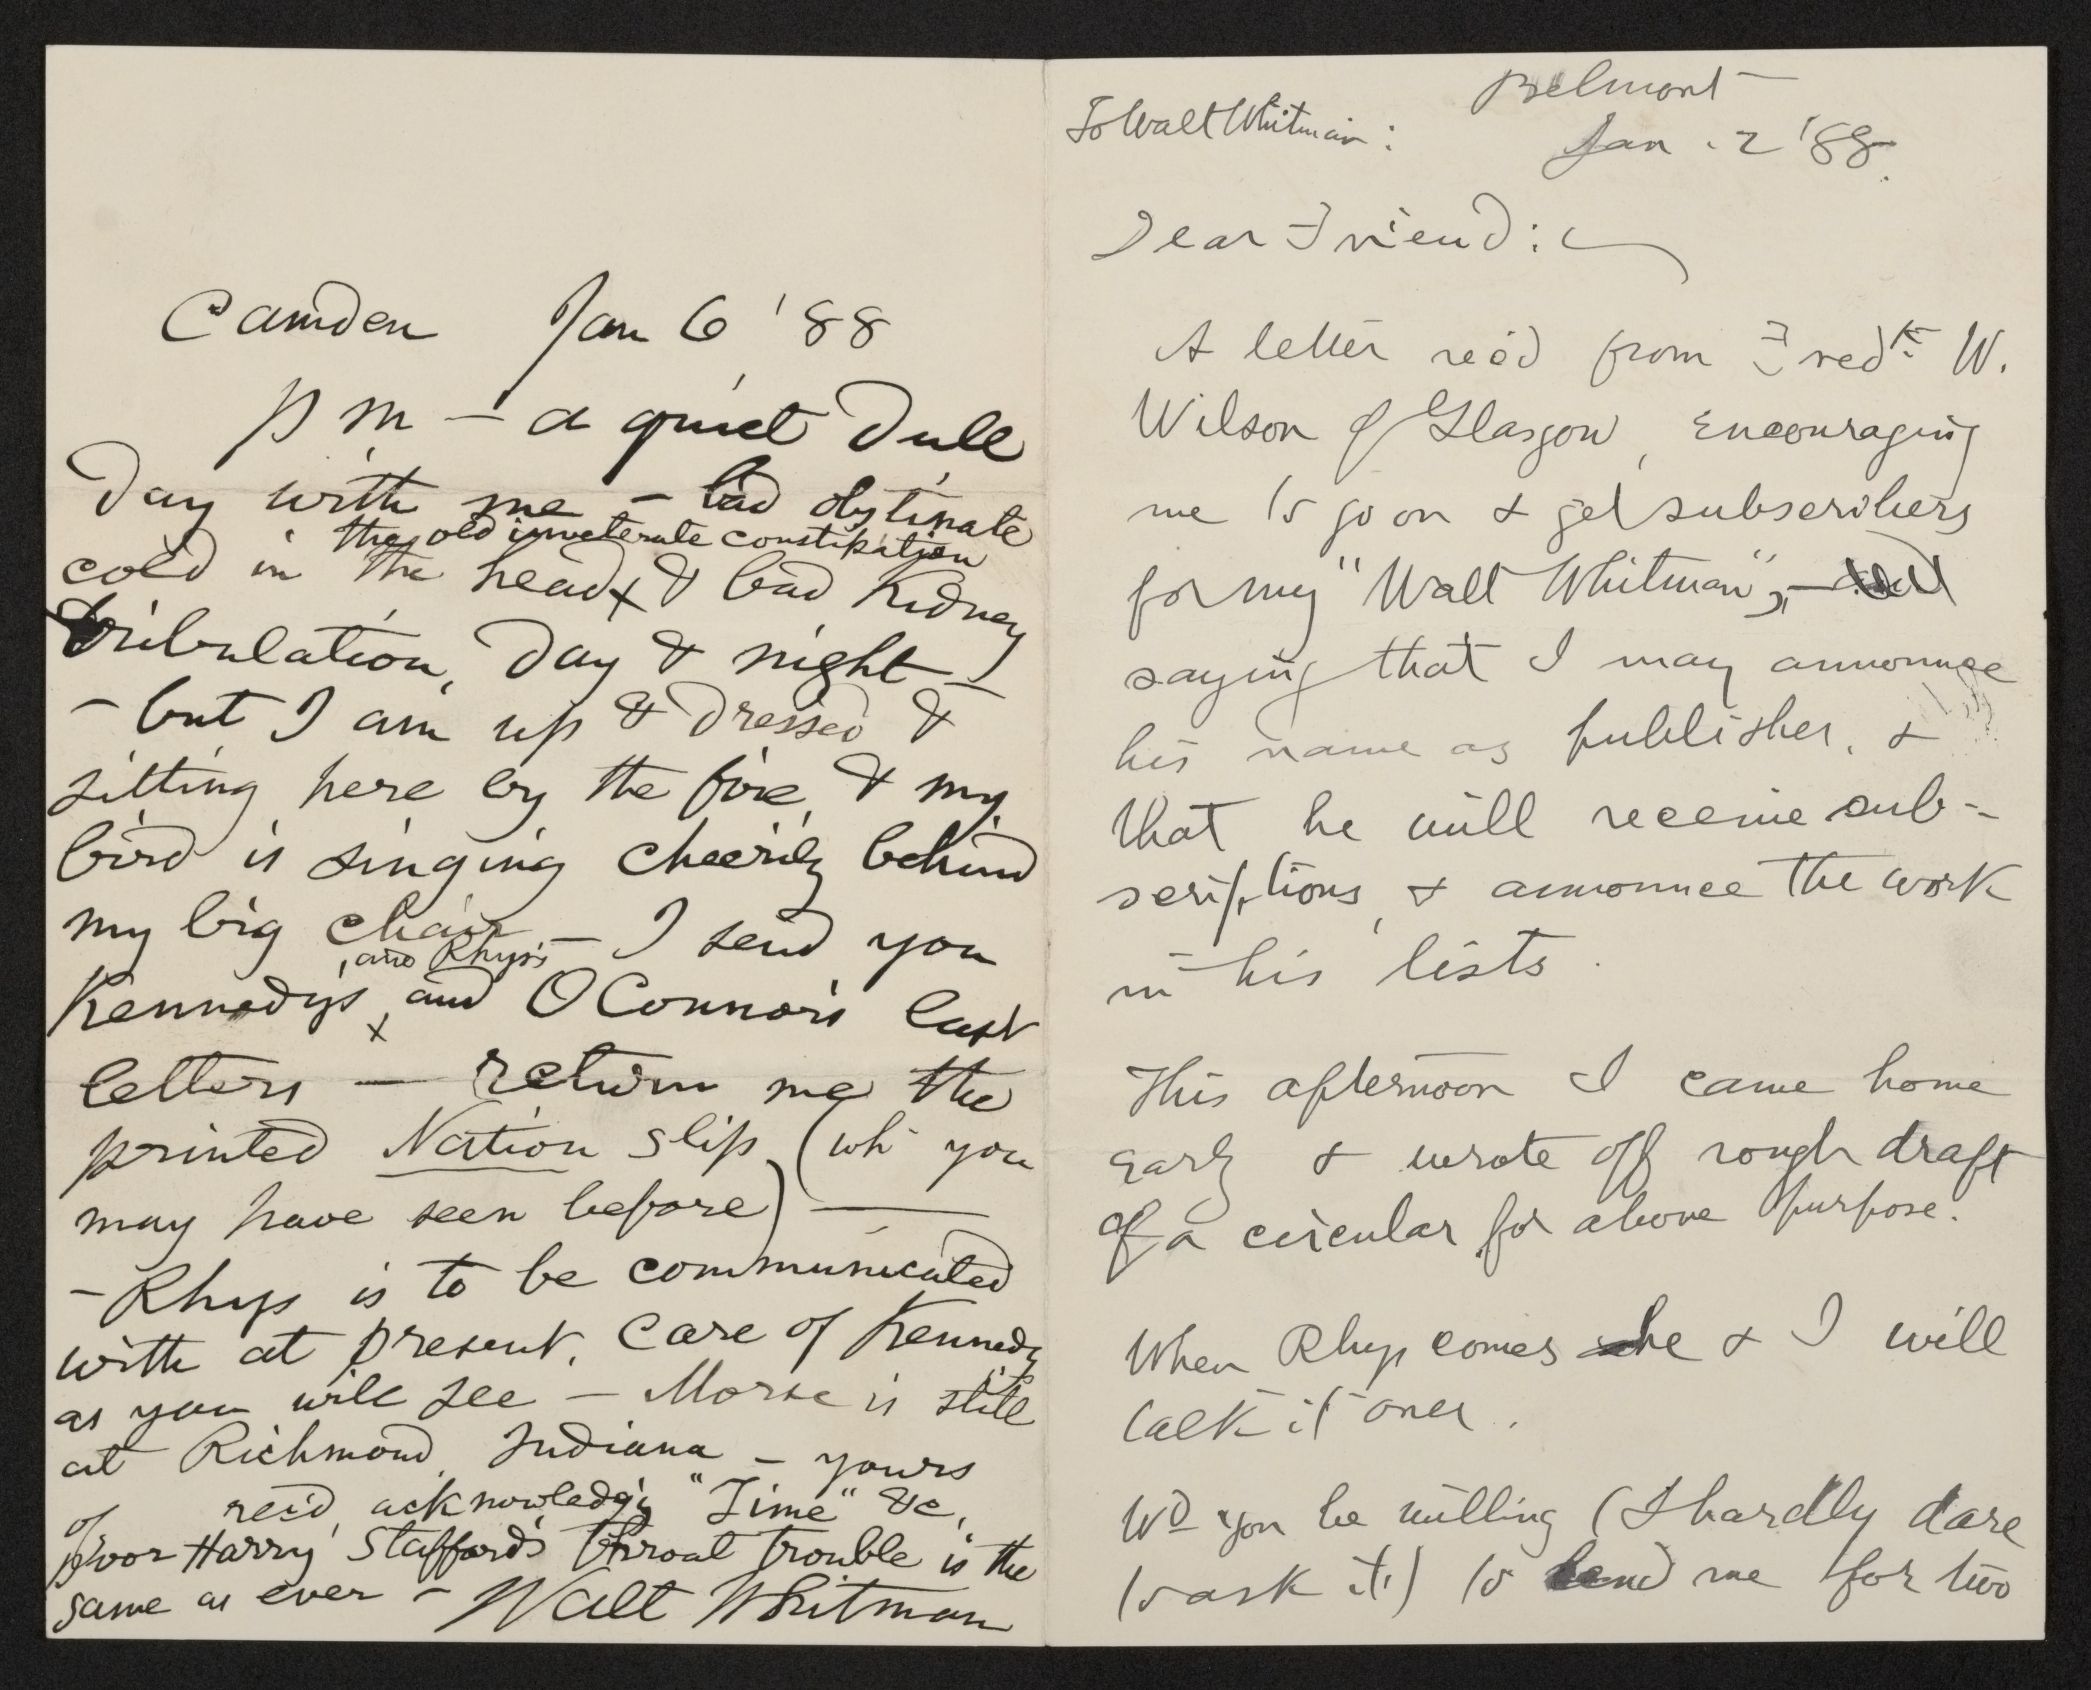 Camden Jan 6 '88
P M — a quiet dull
day with me — bad obstinate
the old inveterate constipation
cold in the head x & bad kidney
tribulation, day & night —
— but I am up & dressed &
sitting here by the fire, & my
bird is singing cheerily behind
my big chair — I send you
, and Rhys's
Kennedy's x and O'Connor's last
letters — return me the
printed Nation slip, (wh' you
may have seen before) —
— Rhys is to be communicated
with at present, care of Kennedy
as you will see — Morse is still
at Richmond, Indiana — yours
of rec'd, acknowledg'g "Time" &c,
poor Harry Stafford's throat trouble is the
same as ever — Walt Whitman
Belmont —
To Walt Whitman:
Jan. 2 '88.
Dear Friend:
A letter rec'd from Fredk. W.
Wilson of Glasgow, encouraging
me to go on & get subscribers
for my "Walt Whitman", — and
saying that I may announce
his name as publisher, &
that he will receive sub-
scriptions, & announce the work
in his lists.
This afternoon I came home
early & wrote off rough draft
of a circular for above purpose.
When Rhys comes he & I will
talk it over.
Wd you be willing (I hardly dare
to ask it) to lend me for two